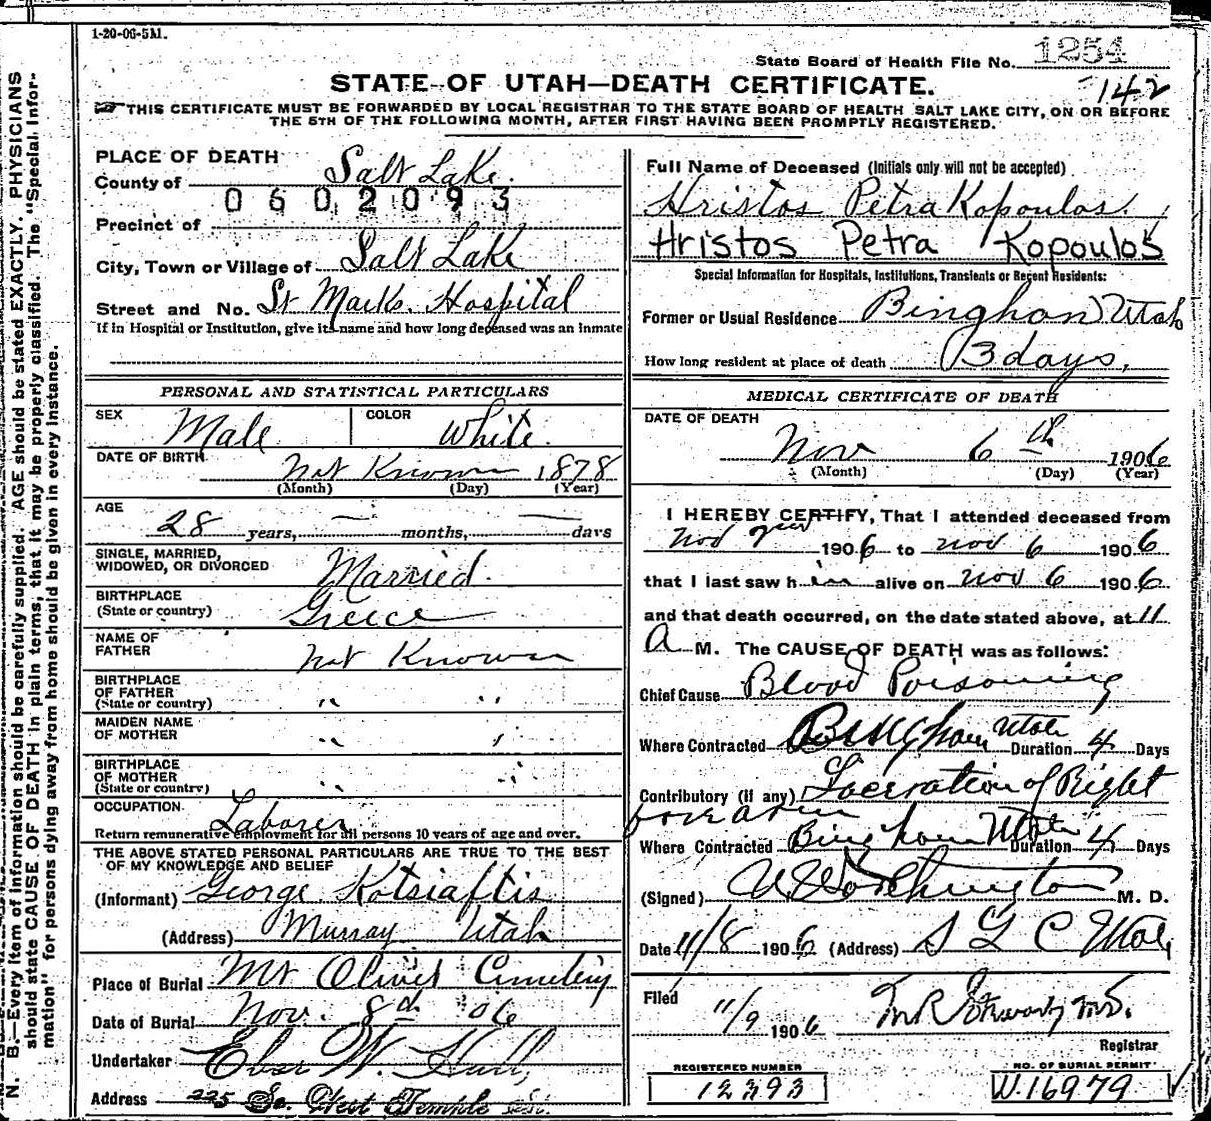 1-20-06-5M.
State Board of Health File No. 1254
142
STATE OF UTAH—DEATH CERTIFICATE.
THIS CERTIFICATE MUST BE FORWARDED BY LOCAL REGISTRAR TO THE STATE BOARD OF HEALTH SALT LAKE CITY, ON OR BEFORE
THE 5TH OF THE FOLLOWING MONTH, AFTER FIRST HAVING BEEN PROMPTLY REGISTERED.
N. B.—Every item of information should be carefully supplied. AGE should be stated EXACTLY. PHYSICIANS
should state CAUSE OF DEATH in plain terms, that it may be properly classified. The "Special Infor-
mation" for persons dying away from home should be given in every instance.
PLACE OF DEATH
County of Salt Lake.
0602093
Precinct of
City, Town or Village of Salt Lake
Street and No. St Marks Hospital
If in Hospital or Institution, give its name and how long deceased was an inmate
PERSONAL AND STATISTICAL PARTICULARS
SEX Male COLOR White.
DATE OF BIRTH Not Known 1878
(Month) (Day) (Year)
AGE
28 years, months, days
SINGLE, MARRIED,
WIDOWED, OR DIVORCED Married.
BIRTHPLACE
(State or country) Greece
NAME OF
FATHER Not Known
BIRTHPLACE
OF FATHER
(State or country) " "
MAIDEN NAME
OF MOTHER " "
BIRTHPLACE
OF MOTHER
(State or country) " "
OCCUPATION Laborer
Return remunerative employment for all persons 10 years of age and over.
THE ABOVE STATED PERSONAL PARTICULARS ARE TRUE TO THE BEST
OF MY KNOWLEDGE AND BELIEF
(Informant) George Kotsiaftis
(Address) Murray Utah
Place of Burial Mt Olivet Cemetery
Date of Burial Nov. 8d '06
Undertaker Eber W. Hall,
Address 225 So. West Temple St.
Full Name of Deceased (Initials only will not be accepted)
Hristos Petra Kopoulos.
Hristos Petra Kopoulos
Special Information for Hospitals, Institutions, Transients or Recent Residents:
Former or Usual Residence Bingham Utah
How long resident at place of death 3 days,
MEDICAL CERTIFICATE OF DEATH
DATE OF DEATH
Nov 6th 1906
(Month) (Day) (Year)
I HEREBY CERTIFY, That I attended deceased from
Nov 2nd 1906 to Nov 6 1906
that I last saw him alive on Nov 6 1906
and that death occurred, on the date stated above, at 11
A M. The CAUSE OF DEATH was as follows:
Chief Cause Blood Poisoning
Where Contracted Bingham Utah Duration 4 Days
Contributory (if any) Laceration of Right
forearm
Where Contracted Bingham Utah Duration 4 Days
(Signed) Worthington M. D.
Date 11/8 1906 (Address) S L C Utah
Filed 11/9 1906
Registrar
REGISTERED NUMBER
12393
NO. OF BURIAL PERMIT
W.16979